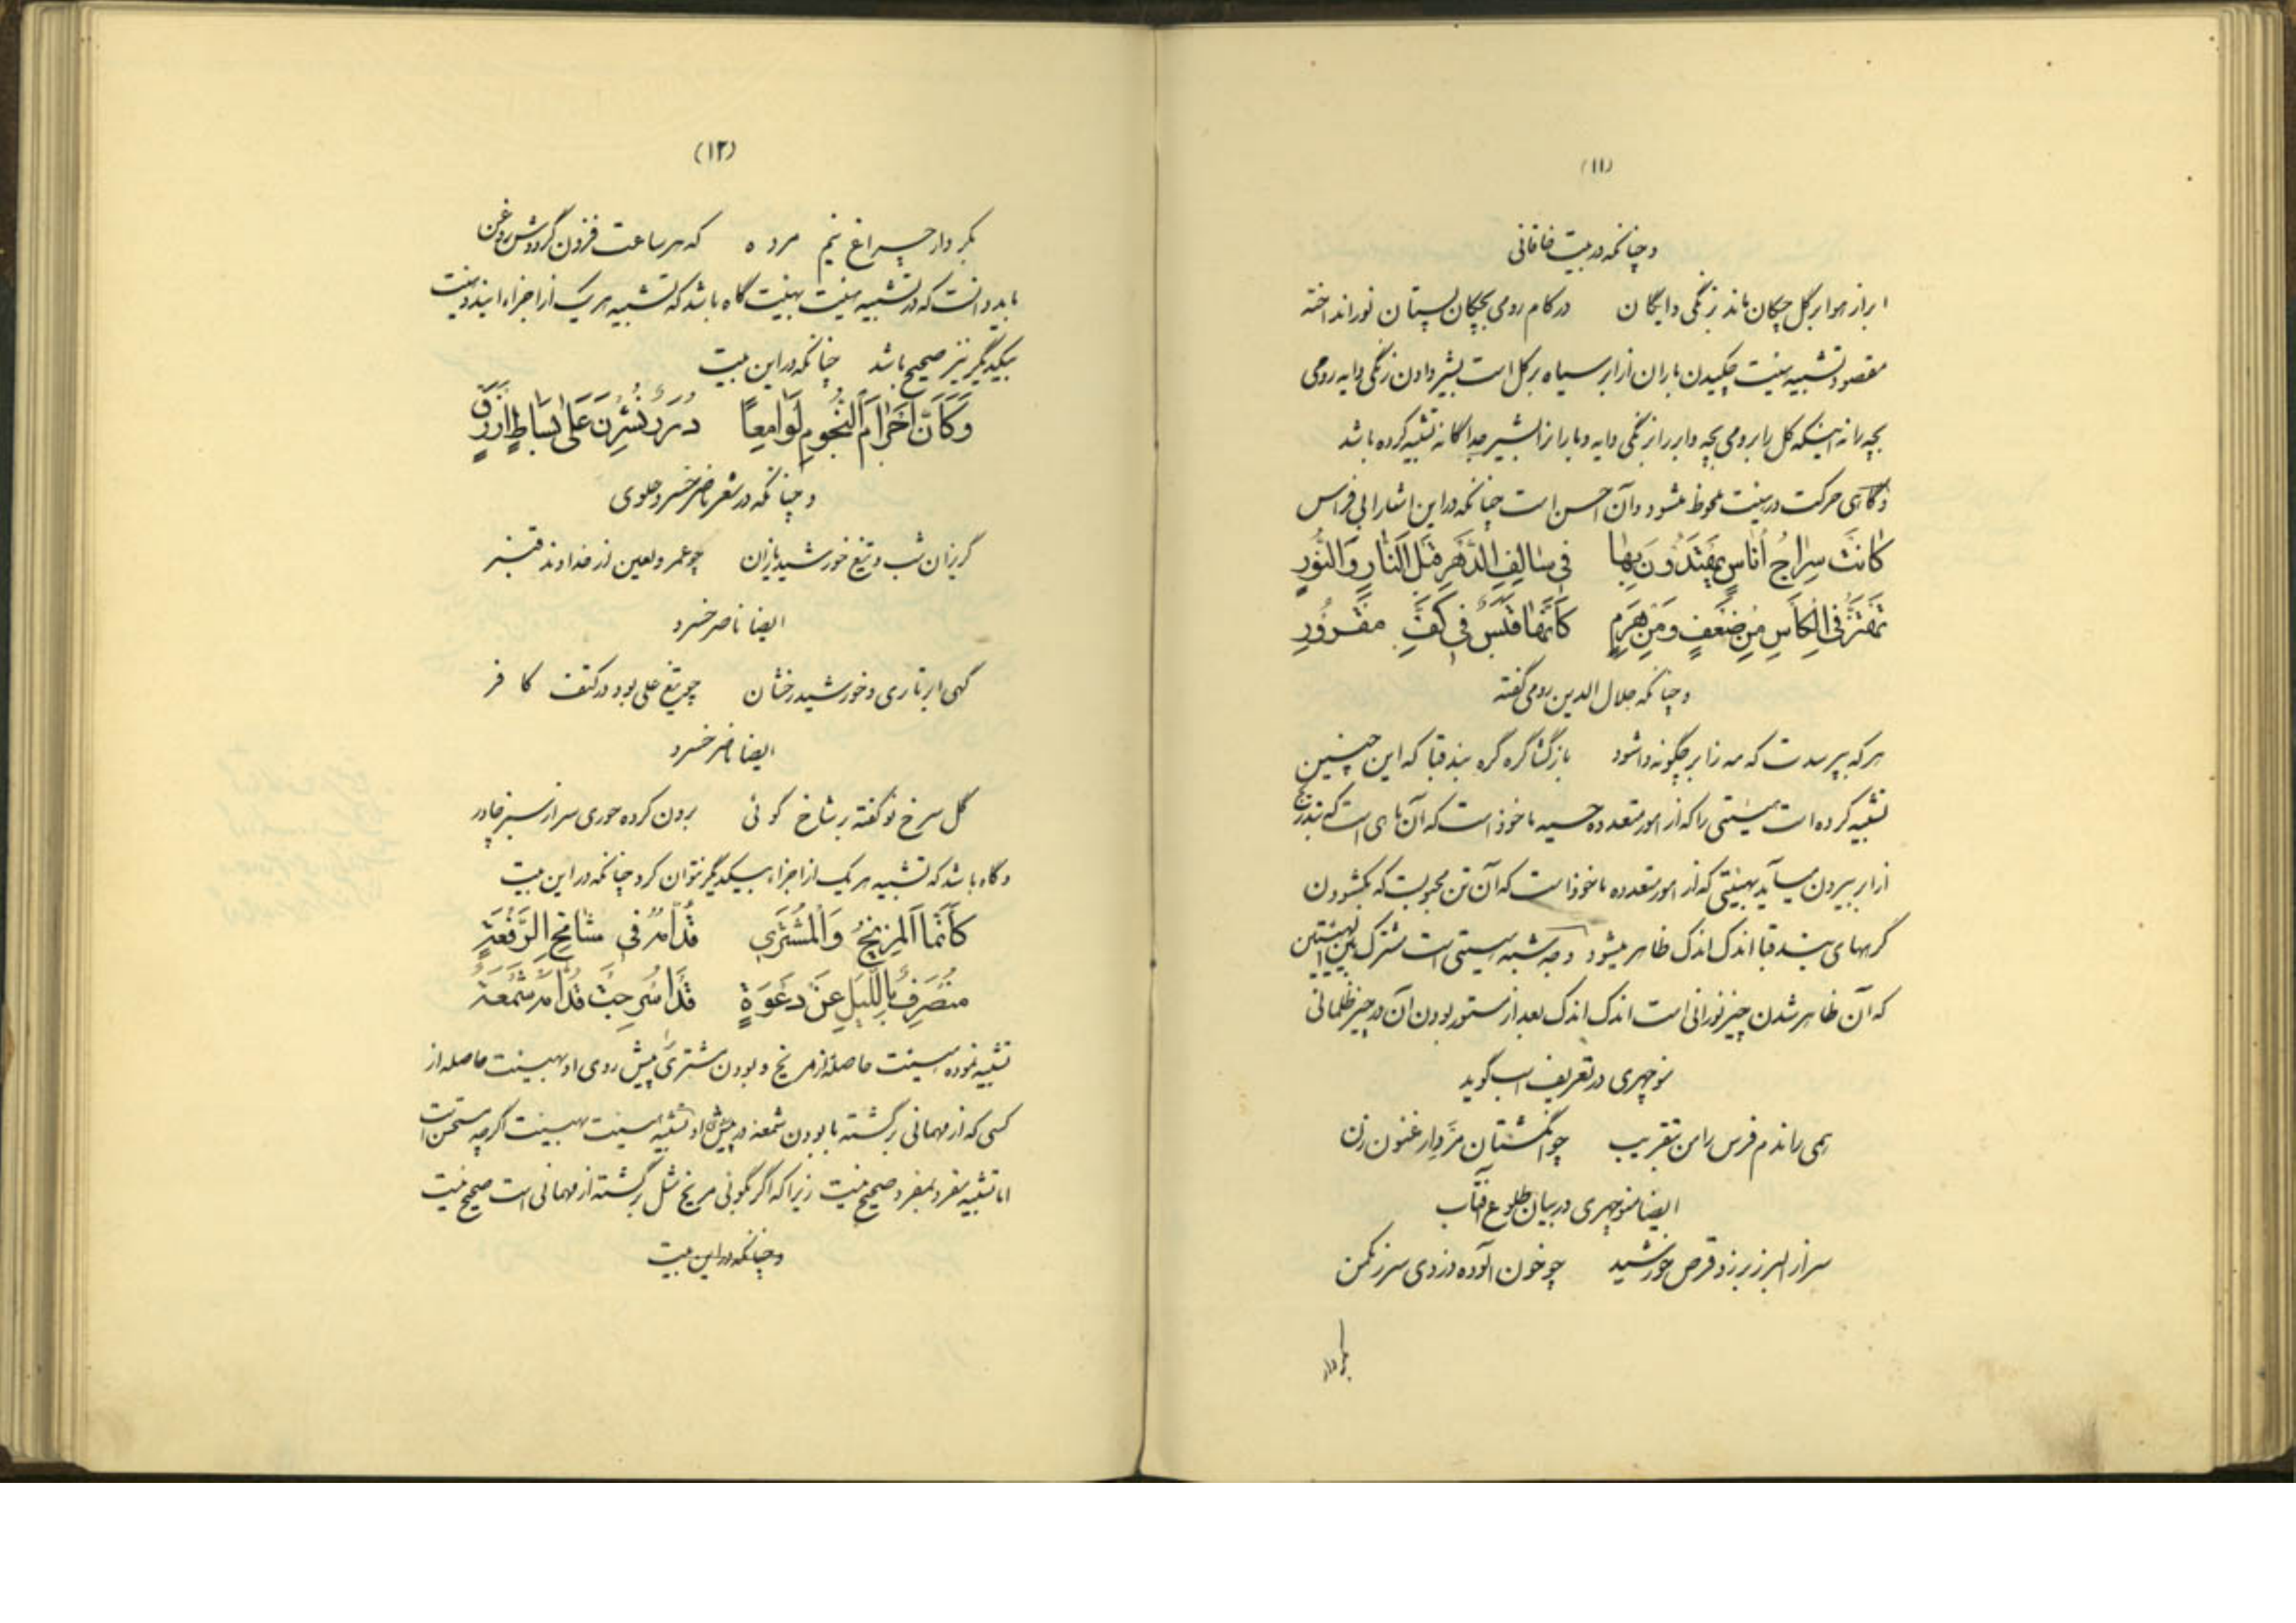 (۱۱)
و چنانکه در بیت خاقانی
ابر از هوا بر گل چکان ماند بزنگی دایگان در کام رومی بچگان پستان نور انداخته
مقصود تشبیه هیئت چکیدن باران از ابر سیاه بر گل است بشیر دادن زنگی دایه رومی
بچه را نه اینکه گل را برومی بچه و ابر را بزنگی دایه و باران را بشیر جداگانه تشبیه کرده باشد
و گاهی حرکت در هیئت ملحوظ میشود و آن احسن است چنانکه در این اشعار ابی فراس
کانَت سِراجُ اُناسٍ یَهتَدُونَ بِها فی سالِفِ الدَّهرِ قَبلَ النّارِ وَالنُّورِ
تَهتَزُّ فِی الکَاسِ مِن ضَعفٍ وَمِن هَرَمٍ کَاَنَّها قَبَسٌ فی کَفِّ مَقرُورِ
و چنانکه جلال الدین رومی گفته
هر که بپرسدت که مه ز ابر چگونه وا شود باز گشا گره گره بند قبا که این چنین
تشبیه کرده است هیئتی را که از امور متعدده حسیه ماخوذ است که آن ماهی است که بتدریج
از ابر بیرون میآید بهیئتی که از امور متعدده ماخوذ است که آن تن محبوبست که بگشودن
گرههای بند قبا اندک اندک ظاهر میشود و وجه شبه هیئتی است مشترک بین الهیئتین
که آن ظاهر شدن چیز نورانی است اندک اندک بعد از مستور بودن آن در چیز ظلمانی
منوچهری در تعریف اسب گوید
همی راندم فرس را من بتقریب چو انگشتان مرد ارغنون زن
ایضا منوچهری در بیان طلوع آفتاب
سر از البرز بر زد قرص خورشید چو خون آلوده دزدی سر ز مکمن
بکردار
(۱۲)
بکردار چراغ نیم مرده که هر ساعت فزون گرددش روغن
باید دانست که در تشبیه هیئت بهیئت گاه باشد که تشبیه هر یک از اجزاء این دو هیئت
بیکدیگر نیز صحیح باشد چنانکه در این بیت
وَکَاَنَّ اَجرامَ النُّجُومِ لَوامِعاً دُرَرٌ نُثِرنَ عَلی بِساطٍ اَزرَقٍ
و چنانکه در شعر ناصر خسرو علوی
گریزان شب و تیغ خورشید یازان چو عمر و لعین از خداوند قنبر
ایضا ناصر خسرو
گهی ابر تاری و خورشید رخشان چو تیغ علی بود در کتف کافر
ایضا ناصر خسرو
گل سرخ نو کفته بر شاخ گوئی برون کرده حوری سر از سبز چادر
و گاه باشد که تشبیه هر یک از اجزاء بیکدیگر نتوان کرد چنانکه در این بیت
کَاَنَّمَا المِرّیخُ وَالمُشتَری قُدّامَهُ فی شامِخِ الرَّفعَةِ
مُنصَرِفٌ بِاللَّیلِ عَن دَعوَةٍ قَد اُسرِجَت قُدّامَهُ شَمعَة
تشبیه نموده هیئت حاصله از مریخ و بودن مشتری پیش روی او بهیئت حاصله از
کسی که از مهمانی برگشته با بودن شمعه در پیش او تشبیه هیئت بهیئت اگرچه مستحسن است
اما تشبیه مفرد بمفرد صحیح نیست زیرا که اگر بگوئی مریخ مثل برگشته از مهمانی است صحیح نیست
و چنانکه در این بیت